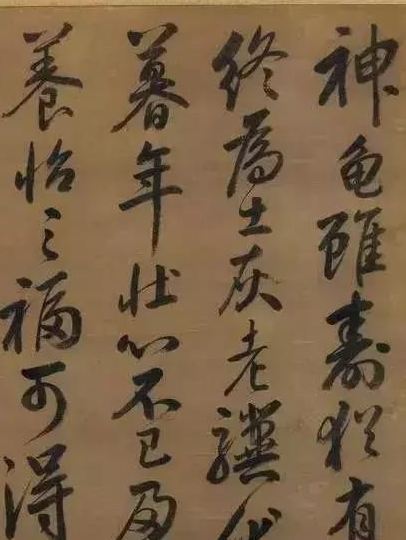 神龟雖壽犹有
終為土灰老驥伏
暮年壮心不已盈
養怡之福可得